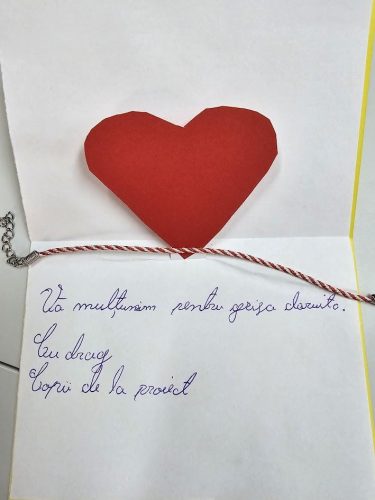 Vă mulțumim pentru grija daruita.
Cu drag
Copiii de la proiect